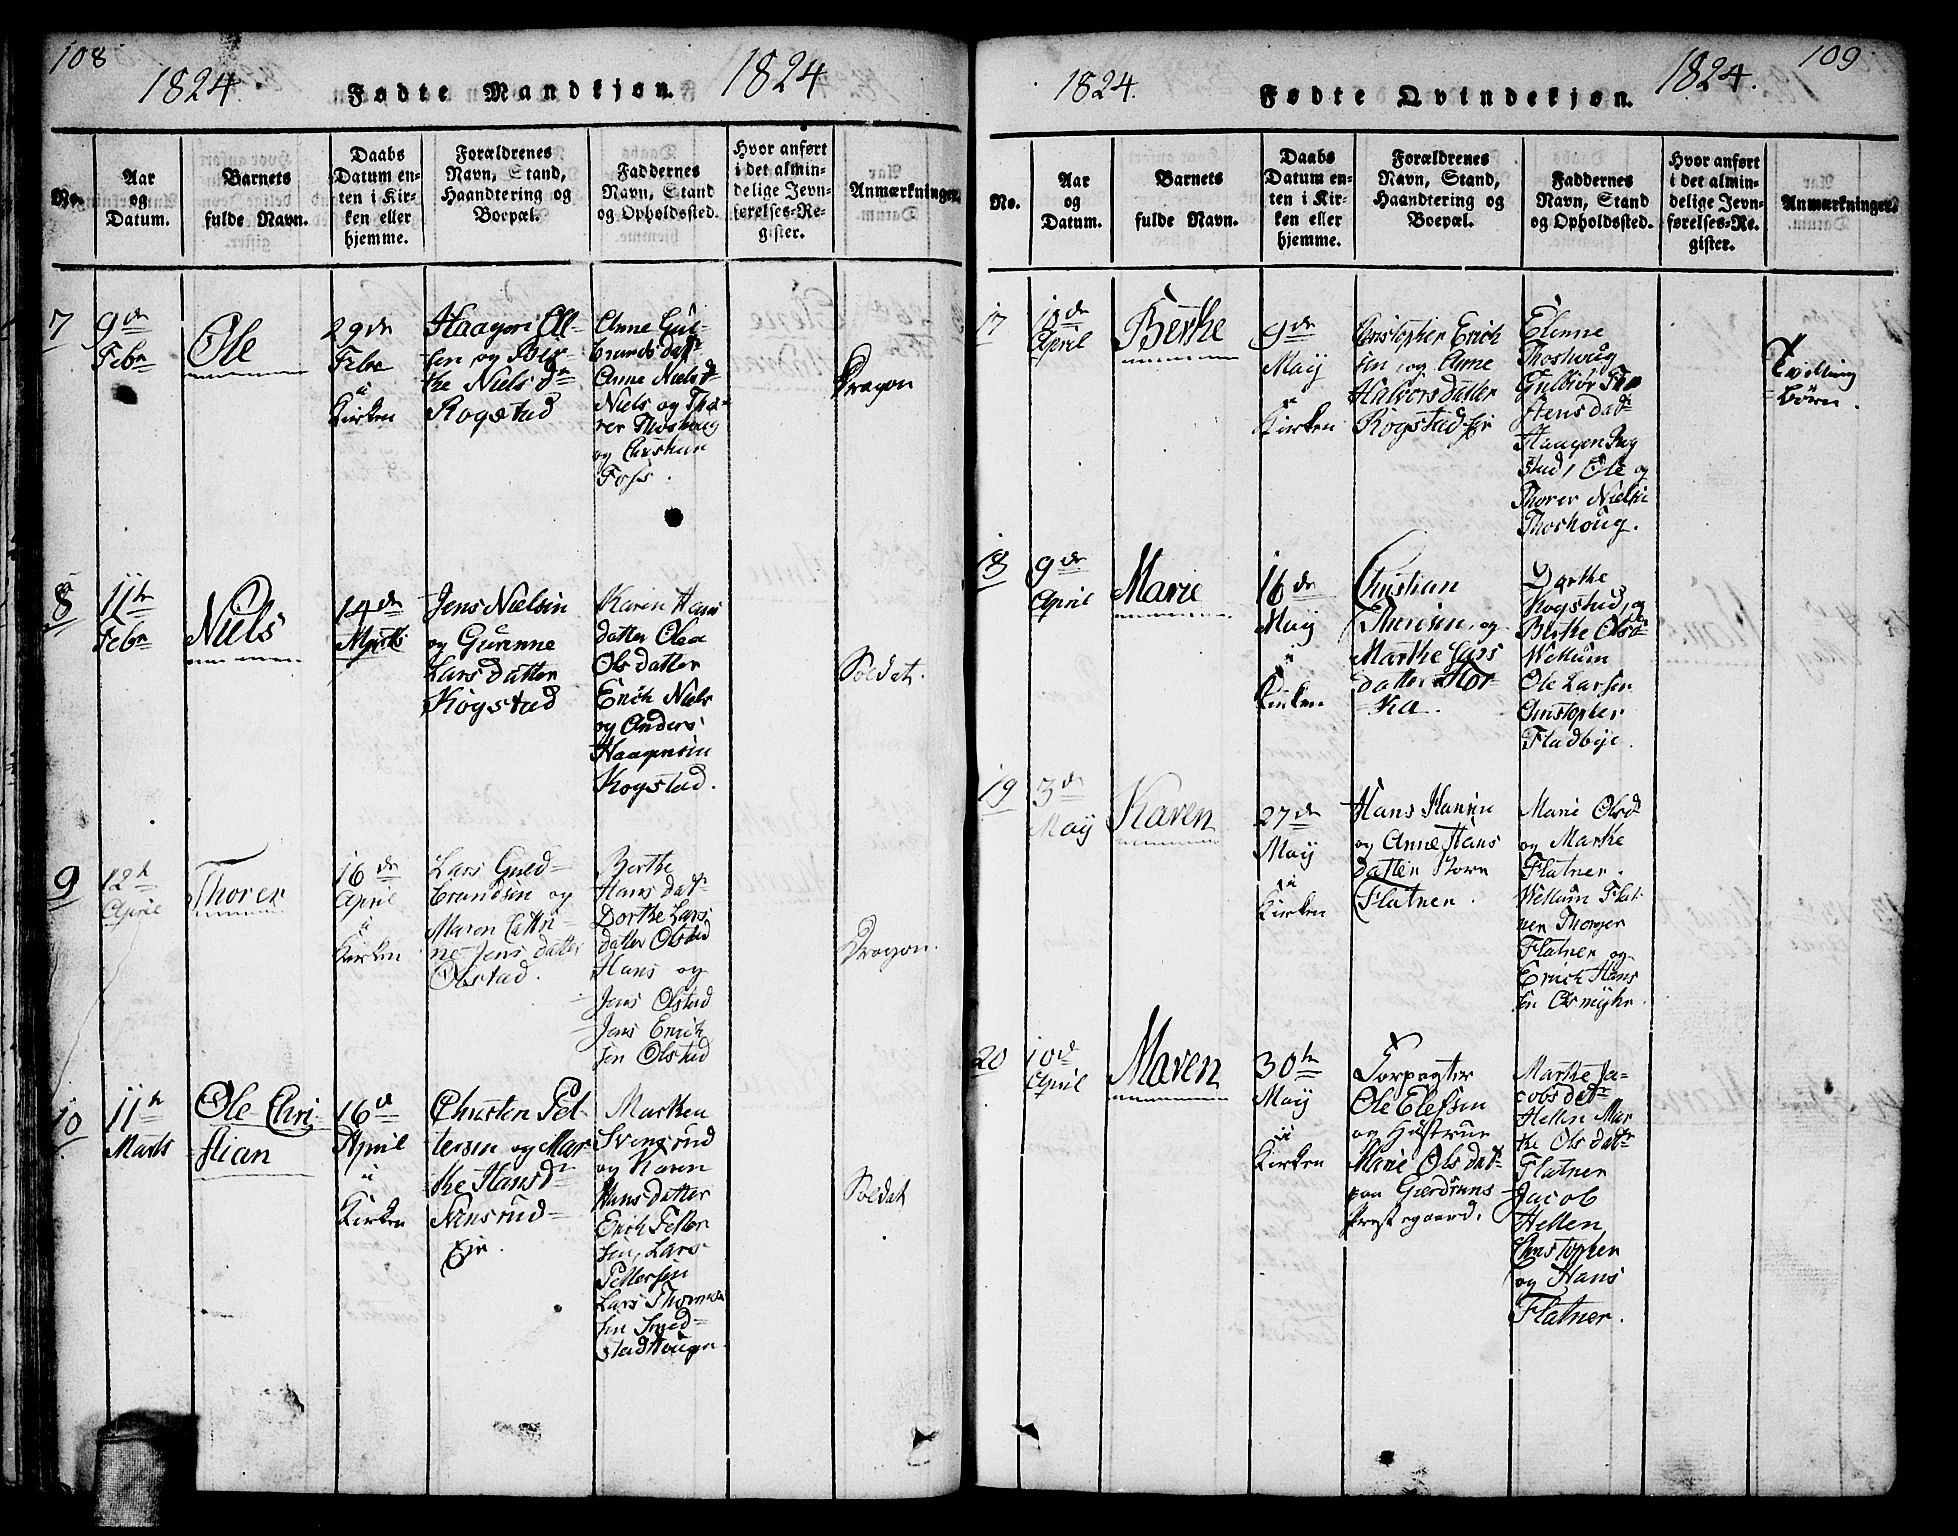 108
1824.
Fødte Mandkjøn.
1824
No.
Aar
og
Datum.
Barnets
fulde Navn.
Daabs
Datum en-
ten i Kir-
ken eller
hjemme.
Forældrenes
Navn, Stand,
Haandtering og
Boepæl.
Faddernes
Navn, Stand
og Opholdssted.
Hvor anført
i det almin-
delige Jevn-
førelses-Re-
gister.
Anmærkninger.
7
9de
Febr
Ole
29de
Febr
i
Kirken
Haagen Ol-
sen og Ber-
the Niels dr
Rogstad
Anne Gul-
brands datr
Anne Nielsdr
Niels og Tho-
rer Thoshoug
og Christian
Foss.
Dragon
8
11te
Febr
Niels
14de
Marts
Jens Nielsen
og Gurenne
Lars Datter
Rogstad
Karen Hans
datter Olea
Ols datter
Erich Niels
og Anders
Haagensen
Rogstad.
Soldat.
9
12t
April
Thorer
16de
April
i
Kirken
Lars Guld-
brandsen og
Maren Cathri-
ne Jens datter
Olstad.
Berthe
Hans datr
Dorthe Lars
datter Olstad
Hans og
Jens Olstad
Jens Erich
sen Olstad
Dragon.
10
11te
Marts
Ole Chri
stian
16d
April
i
Kirken
Christen Pet-
tersen og Mar
the Hansdr
Svensrud-
Eje.
Marthen
Svensrud
og Karen
Hans datter
Erich Petter
sen, Lars
Pettersen
Lars Thorers
sen Smed-
stad Hougen.
Soldat
109
1824.
Fødte Qvindekjøn.
1824.
No.
Aar
og
Datum.
Barnets
fulde Navn.
Daabs
Datum en-
ten i Kir-
ken eller
hjemme.
Forældrenes
Navn, Stand,
Haandtering og
Boepæl.
Faddernes
Navn, Stand
og Opholdssted.
Hvor anført
i det almin-
delige Jevn-
førelses-Re-
gister.
Anmærkninger.
17
10de
April
Berthe
9de
May
i
Kirken
Christopher Erich
sen, og Anne
Halvors datter
Rogstad Eje
Elenne
Thoshoug
Gulbiør Tho
stens datr
Haagen Rog
stad, Ole og
Thorer Nielsen
Thoshoug.
Tvilling
Børn.
18
9de
April
Marie
16de
May
i
Kirken
Christian
Thoresen, og
Marthe Lars
datter Hor-
ka.
Dorthe
Rogstad, og
Berthe Olsdr
Wellum
Ole Larsen
Christopher
Fladbye.
19
3de
May
Karen
27de
May
i
Kirken
Hans Hansen
og Anne Hans
datter Store
Flatner.
Marie Olsdr
og Marthe
Flatner.
Wellum Flat
ner Thorger
Flatner og
Erich Hans
sen Olsmyhr.
20
10de
April
Maren
30te
May
i
Kirken
Forpagter
Ole Elefsen
og Hustrue
Marie Ols datr
paa Gierdrums
Prestegaard.
Marthe Ja-
cobs datr
Hellen Mar
the Ols datr
Flatner
Jacob
Hellen
Christopher
og Hans
Flatner.